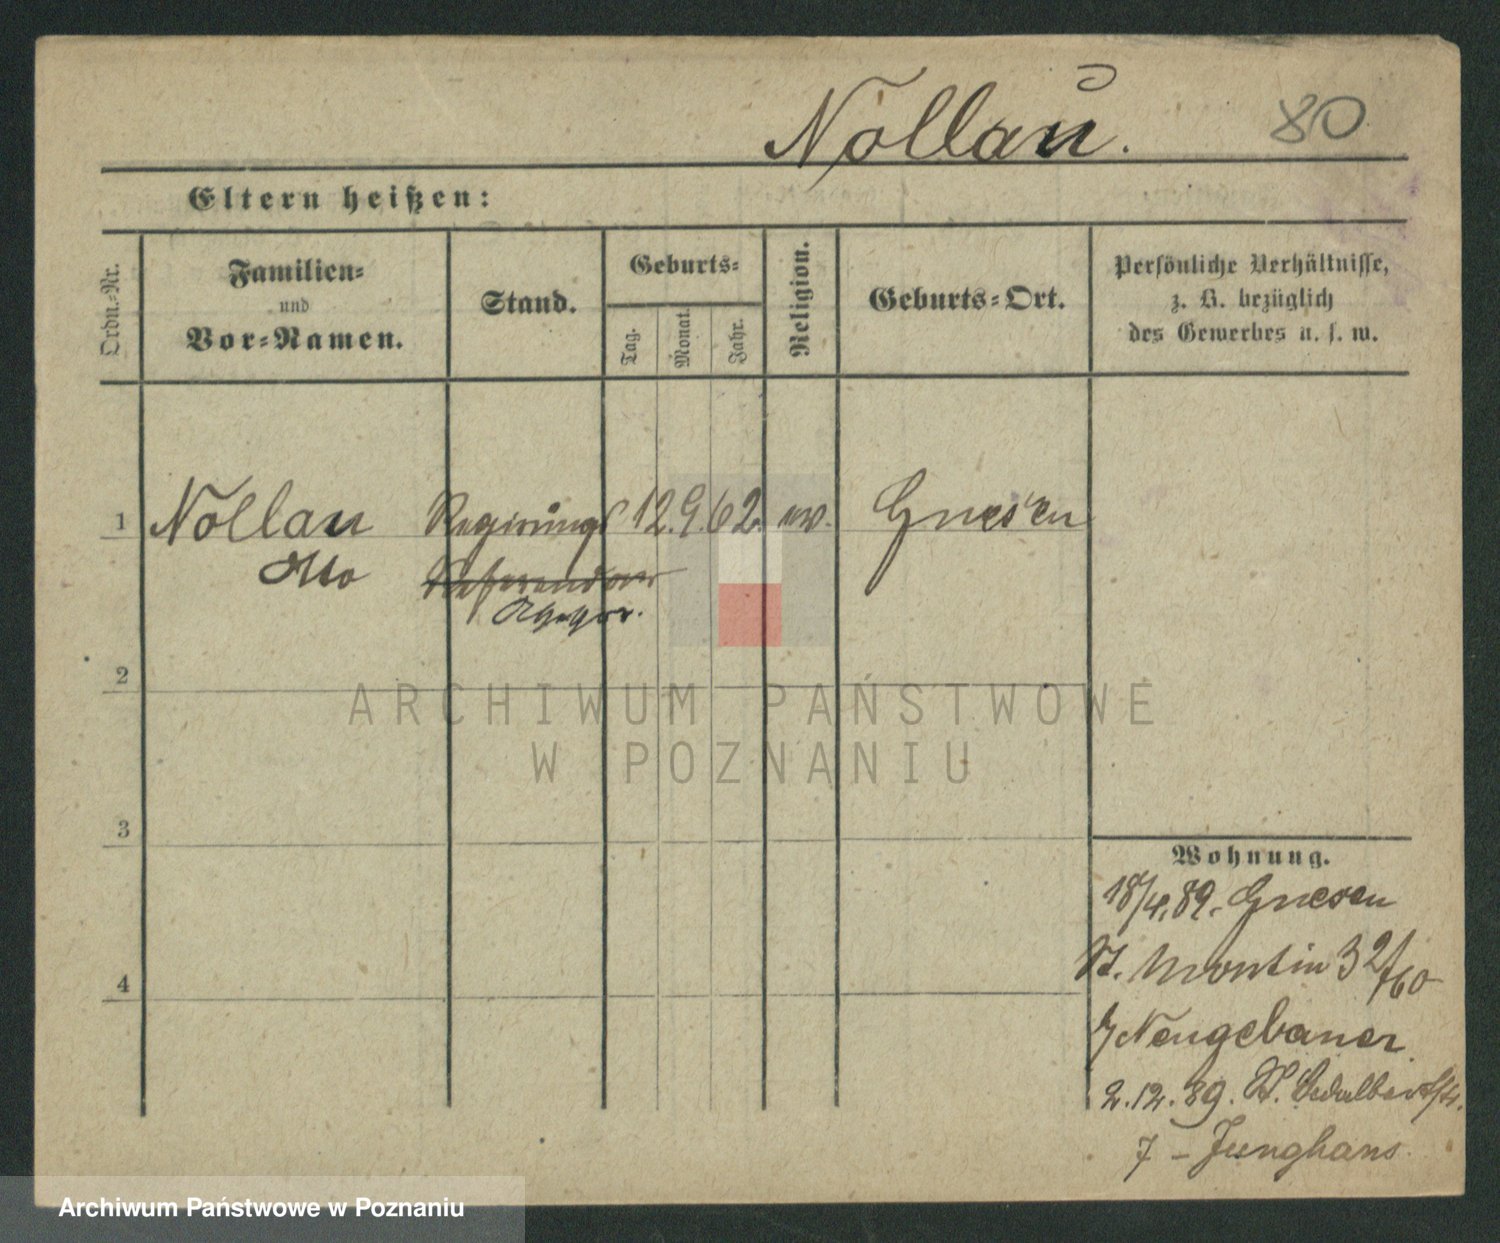 Nollau. 80
Eltern heißen:
Ordn.-Nr.
Familien-
und
Vor-Namen.
Stand.
Geburts-
Tag.
Monat.
Jahr.
Religion.
Geburts-Ort.
Persönliche Verhältnisse,
z. B. bezüglich
des Gewerbes u. s. w.
1 Nollau Regirungs 12. 9. 62. ev. Gnesen
Otto Referendar
2
3
4
Wohnung.
18/4. 89. Gnesen
St. Martin 32/
Neugebauer
2.12.89. St. Adalbertstr.
7 - Junghans
ARCHIWUM PAŃSTWOWE
W POZNANIU
Archiwum Państwowe w Poznaniu